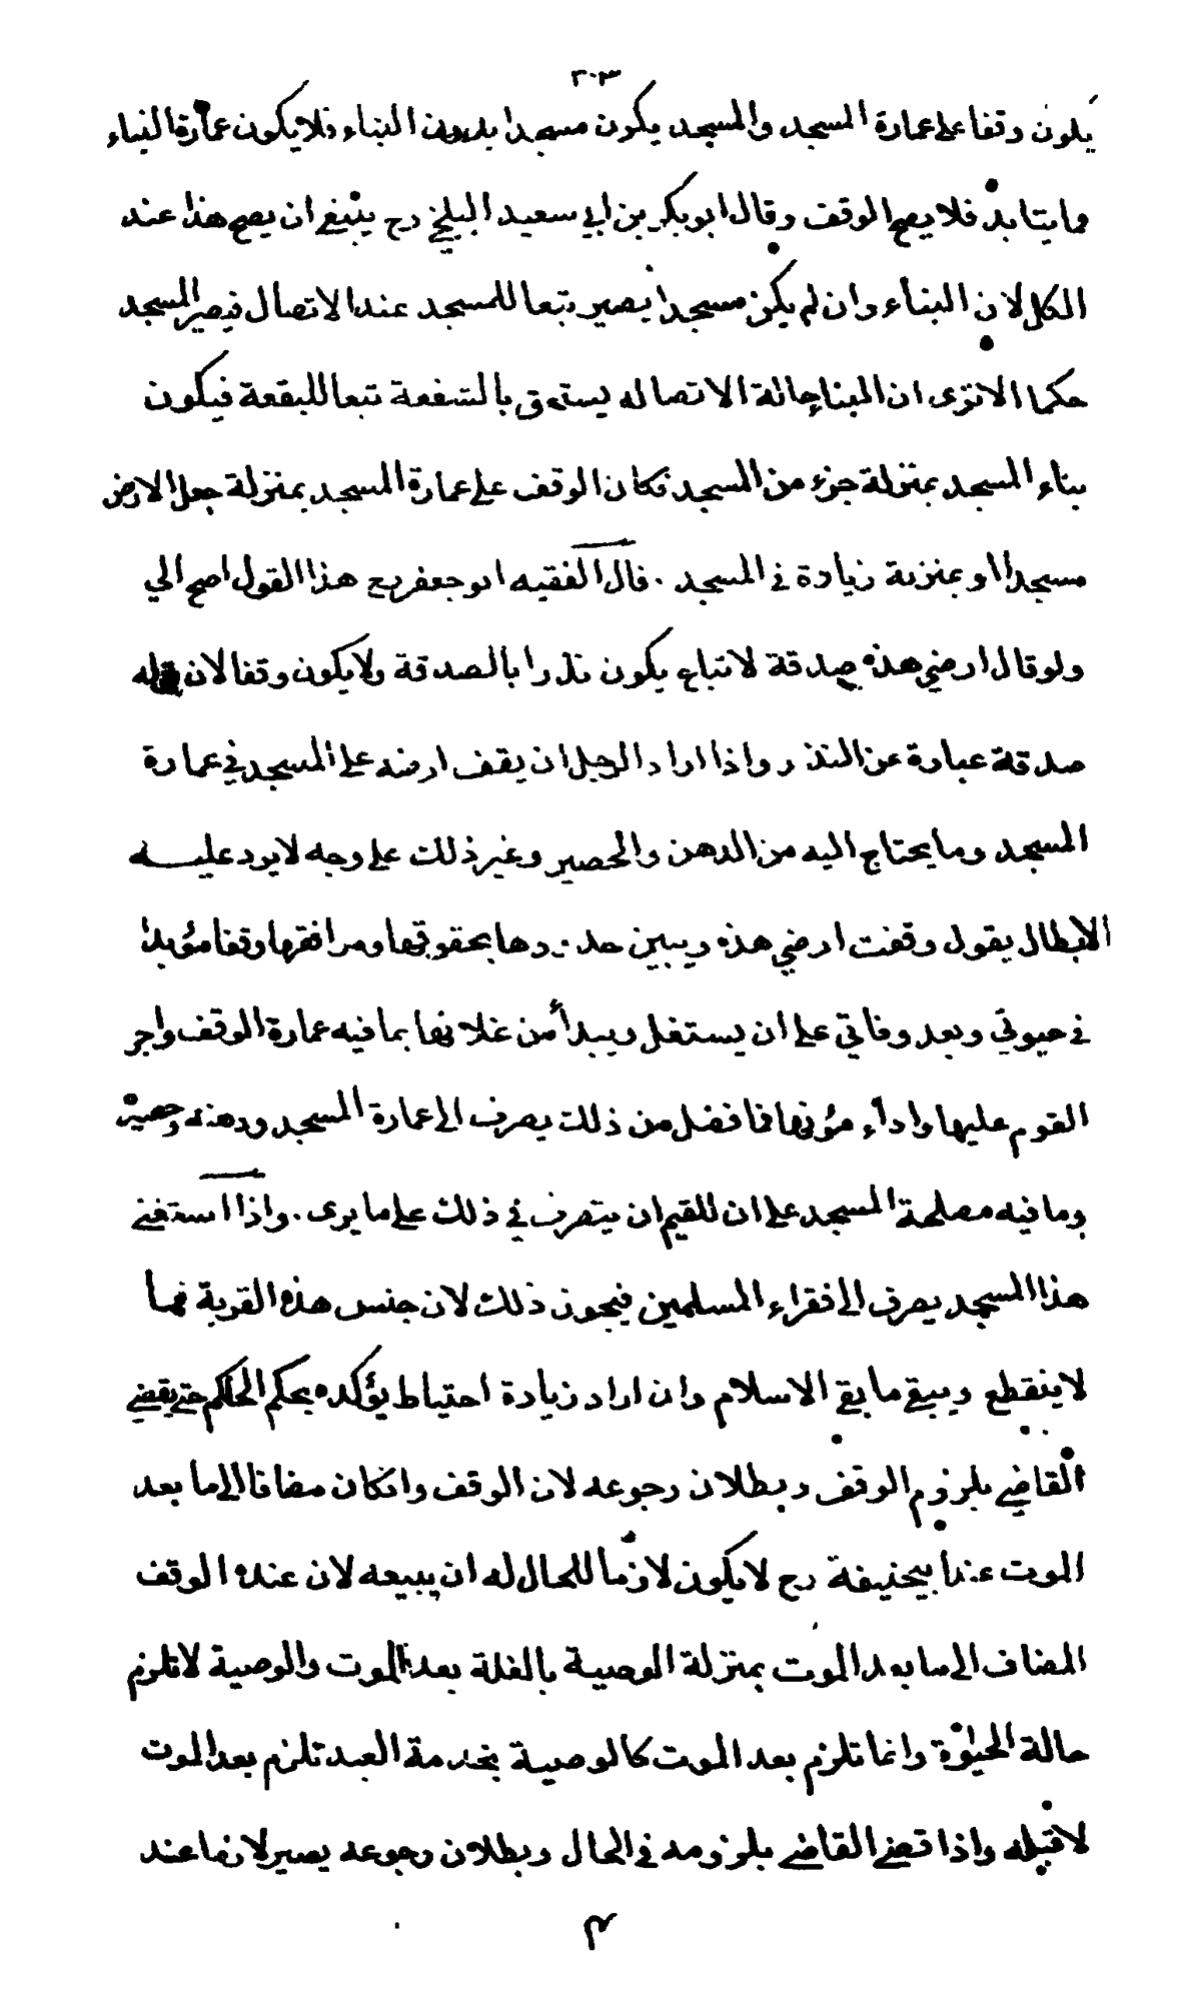 ٣٠٣
يكون وقفا على عمارة المسجد والمسجد يكون مسجدا بدون البناء فلا يكون عمارة البناء
مما يتابد فلا يصح الوقف وقال ابو بكر بن ابي سعيد البلخي رح ينبغي ان يصح هذا عند
الكل لان البناء وان لم يكن مسجدا يصير تبعا للمسجد عند الاتصال فيصير المسجد
حكما الا ترى ان البناء حالة الاتصال يستحق بالشفعة تبعا للبقعة فيكون
بناء المسجد بمنزلة جزء من المسجد فكان الوقف على عمارة المسجد بمنزلة جعل الارض
مسجدا او بمنزلة زيادة في المسجد . قال الفقيه ابو جعفر رح هذا القول اصح الي
ولو قال ارضي هذه صدقة لا تباع يكون نذرا بالصدقة ولا يكون وقفا لان قوله
صدقة عبارة عن النذر واذا اراد الرجل ان يقف ارضه على المسجد في عمارة
المسجد وما يحتاج اليه من الدهن والحصير وغير ذلك على وجه لا يرد عليه
الابطال يقول وقفت ارضي هذه ويبين حدودها بحقوقها ومرافقها وقفا مؤبدا
في حيوتي وبعد وفاتي على ان يستغل ويبدأ من غلاتها بما فيه عمارة الوقف واجر
القوم عليها واداء مؤنها فما فضل من ذلك يصرف الى عمارة المسجد ودهنه وحصيره
وما فيه مصلحة المسجد على ان للقيم ان يتصرف في ذلك على ما يرى . واذا استغنى
هذا المسجد يصرف الى فقراء المسلمين فيجوز ذلك لان جنس هذه القربة مما
لا ينقطع ويبقى ما بقي الاسلام وان اراد زيادة احتياط يؤكده بحكم الحاكم حتى يقضي
القاضي بلزوم الوقف وبطلان رجوعه لان الوقف وان كان مضافا الى ما بعد
الموت عند ابيحنيفة رح لا يكون لازما للحال له ان يبيعه لان عنده الوقف
المضاف الى ما بعد الموت بمنزلة الوصية بالغلة بعد الموت والوصية لا تلزم
حالة الحيوة وانما تلزم بعد الموت كالوصية بخدمة العبد تلزم بعد الموت
لا قبله واذا قضى القاضي بلزومه في الحال وبطلان رجوعه يصير لازما عند
م